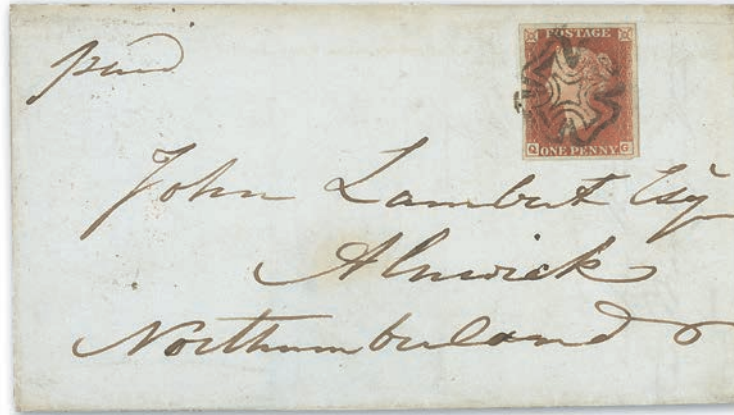 POSTAGE
paid
ONE PENNY
Q G
John Lambert Esq
Alnwick
Northumberland